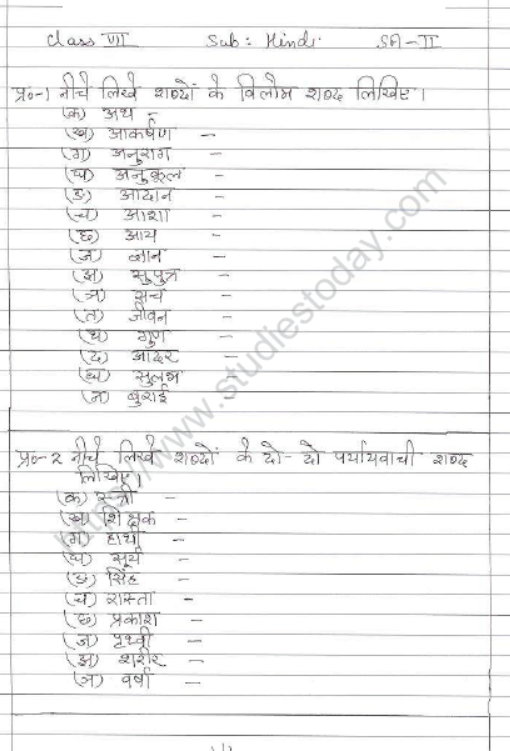 Class VII Sub: Hindi. SA-II
प्र०-1 नीचे लिखे शब्दों के विलोम शब्द लिखिए।
(क) अथ -
(ख) आकर्षण -
(ग) अनुराग -
(घ) अनुकूल -
(ङ) आदान -
(च) आशा -
(छ) आय -
(ज) ज्ञान -
(झ) सुपुत्र -
(ञ) सच -
(त) जीवन -
(थ) गुण -
(द) आदर -
(ध) सुलभ -
(न) बुराई -
प्र०-2 नीचे लिखे शब्दों के दो-दो पर्यायवाची शब्द
लिखिए।
(क) स्त्री -
(ख) शिक्षक -
(ग) हाथी -
(घ) सूर्य -
(ङ) सिंह -
(च) रास्ता -
(छ) प्रकाश -
(ज) पृथ्वी -
(झ) शरीर -
(ञ) वर्षा -
https://www.studiestoday.com